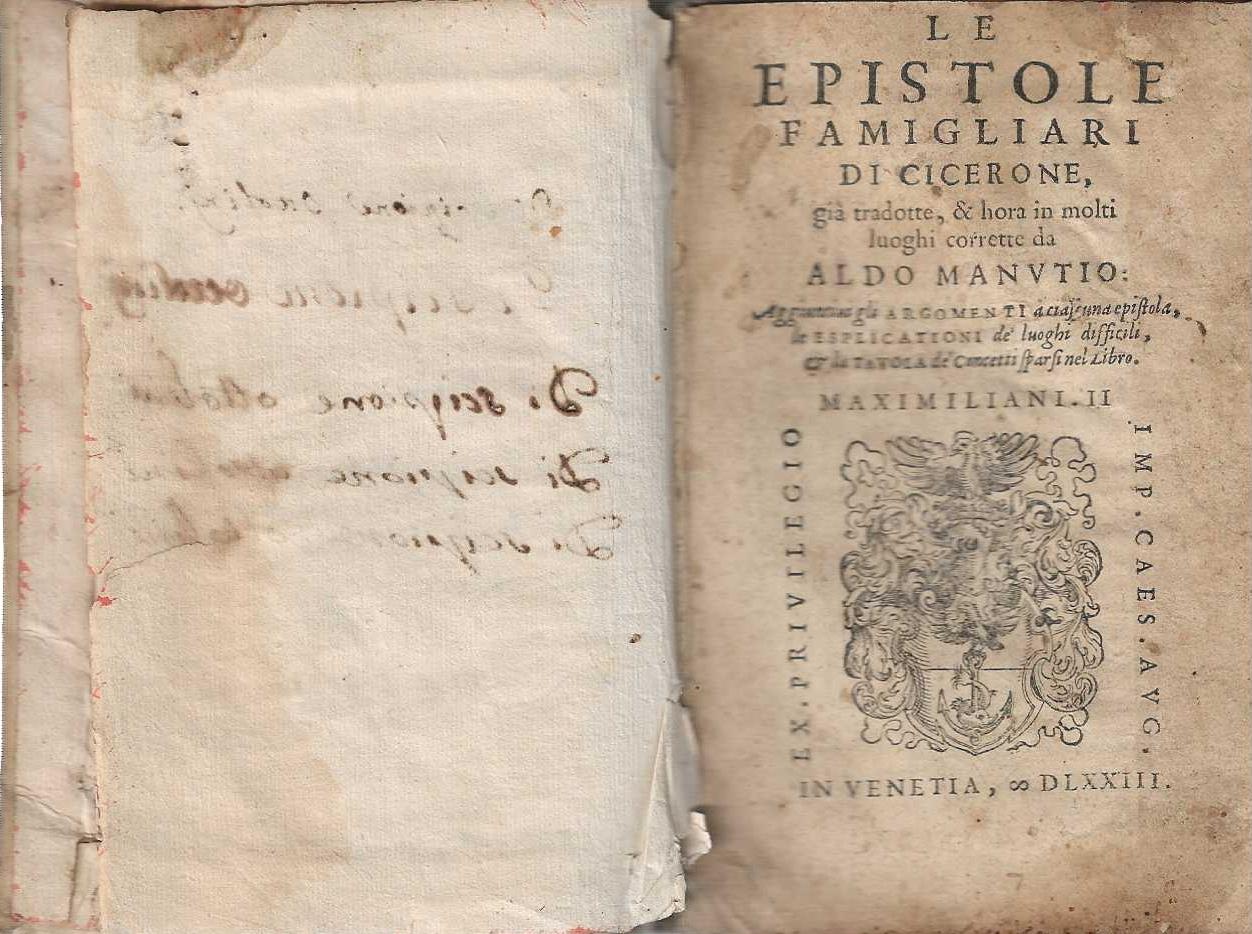 Di scipione
Di scipione
Di scipione
Di scipione
LE
EPISTOLE
FAMIGLIARI
DI CICERONE,
già tradotte, & hora in molti
luoghi corrette da
ALDO MANVTIO:
Aggiuntoui gli ARGOMENTI a ciascuna epistola,
le ESPLICATIONI de' luoghi difficili,
& la TAVOLA de' Concetti sparsi nel Libro.
MAXIMILIANI. II
EX. PRIVILEGIO
IMP. CAES. AVG.
IN VENETIA, ∞ DLXXIII.